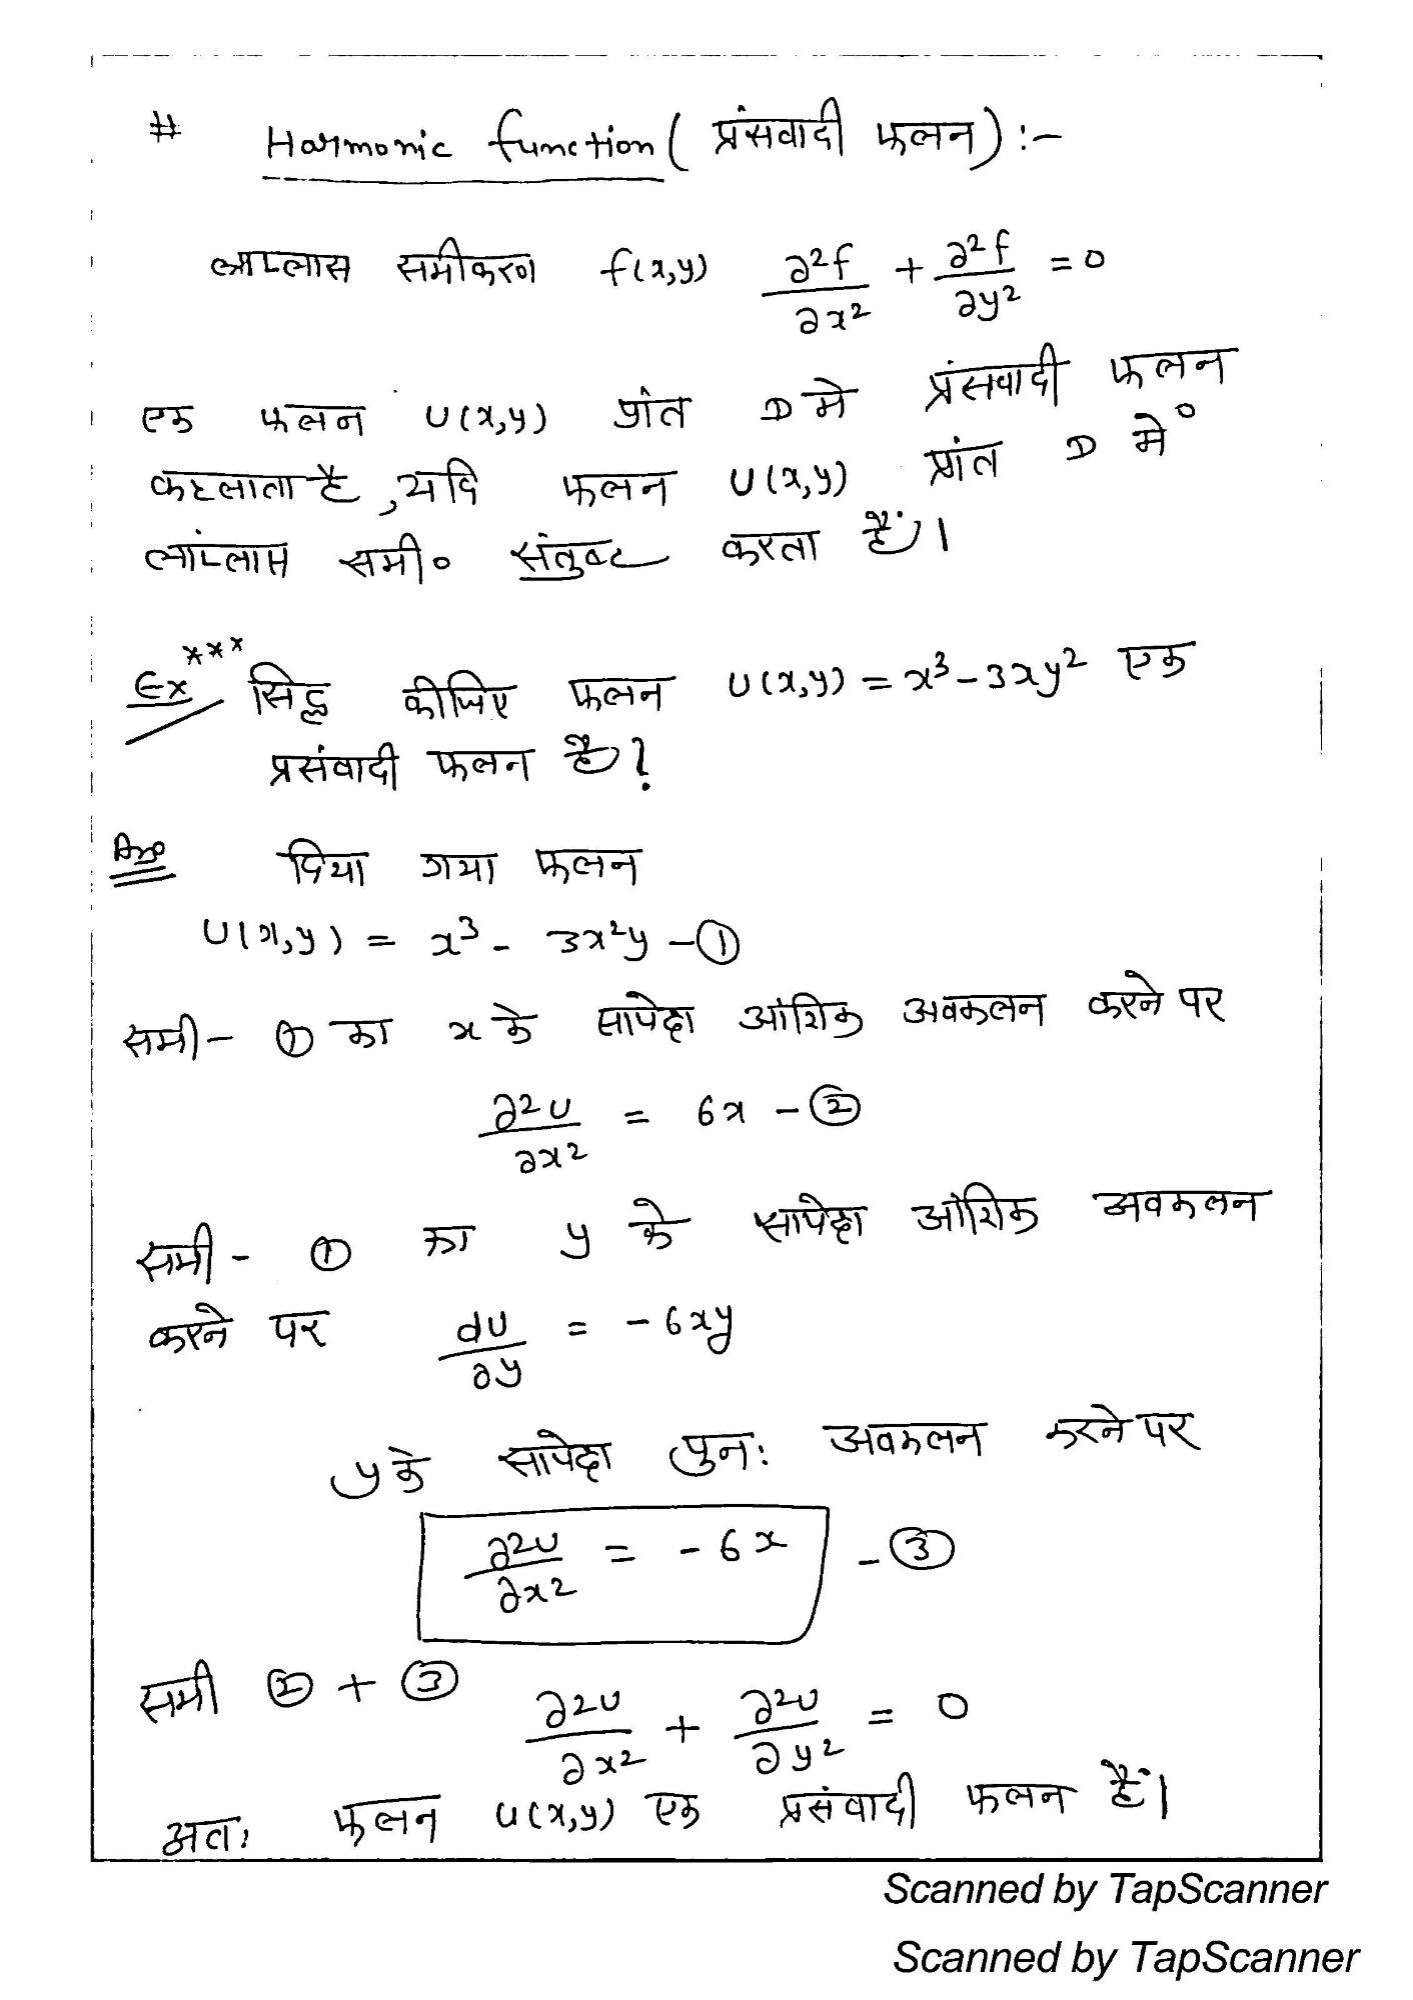 # Harmonic function ( प्रंसवादी फलन ) :-
लाप्लास समीकरण f(x,y) ∂²f/∂x² + ∂²f/∂y² = 0
एक फलन U(x,y) प्रांत D मे प्रंसवादी फलन
कहलाता है, यदि फलन U(x,y) प्रांत D में
लांप्लास समी० संतुष्ट करता हैं।
Ex *** सिद्ध कीजिए फलन U(x,y) = x³ - 3xy² एक
प्रसंवादी फलन है?
Ans दिया गया फलन
U(x,y) = x³ - 3x²y - ①
समी - ① का x के सापेक्ष आंशिक अवकलन करने पर
∂²U/∂x² = 6x - ②
समी - ① का y के सापेक्ष आंशिक अवकलन
करने पर dU/∂y = - 6xy
y के सापेक्ष पुन: अवकलन करने पर
∂²U/∂x² = - 6x - ③
समी ② + ③ ∂²U/∂x² + ∂²U/∂y² = 0
अत: फलन U(x,y) एक प्रसंवादी फलन हैं।
Scanned by TapScanner
Scanned by TapScanner